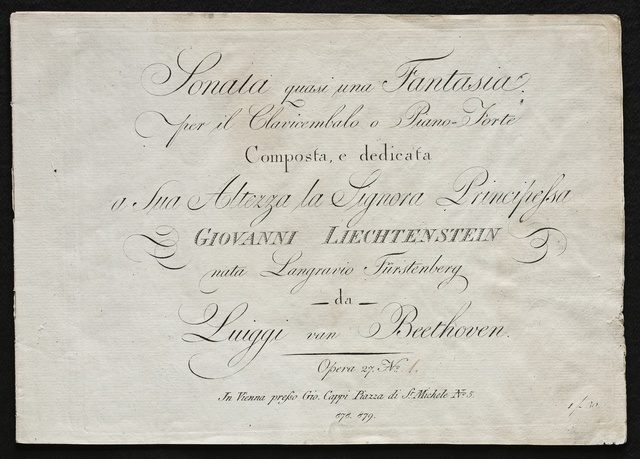 Sonata quasi una Fantasia.
per il Clavicembalo o Piano-Forte
Composta, e dedicata
a Sua Altezza la Signora Principeſsa
GIOVANNI LIECHTENSTEIN
nata Langravio Fürstenberg
— da —
Luiggi van Beethoven.
Opera 27. No. 1.
In Vienna preſso Gio. Cappi Piazza di St. Michele No. 5.
878. 879.